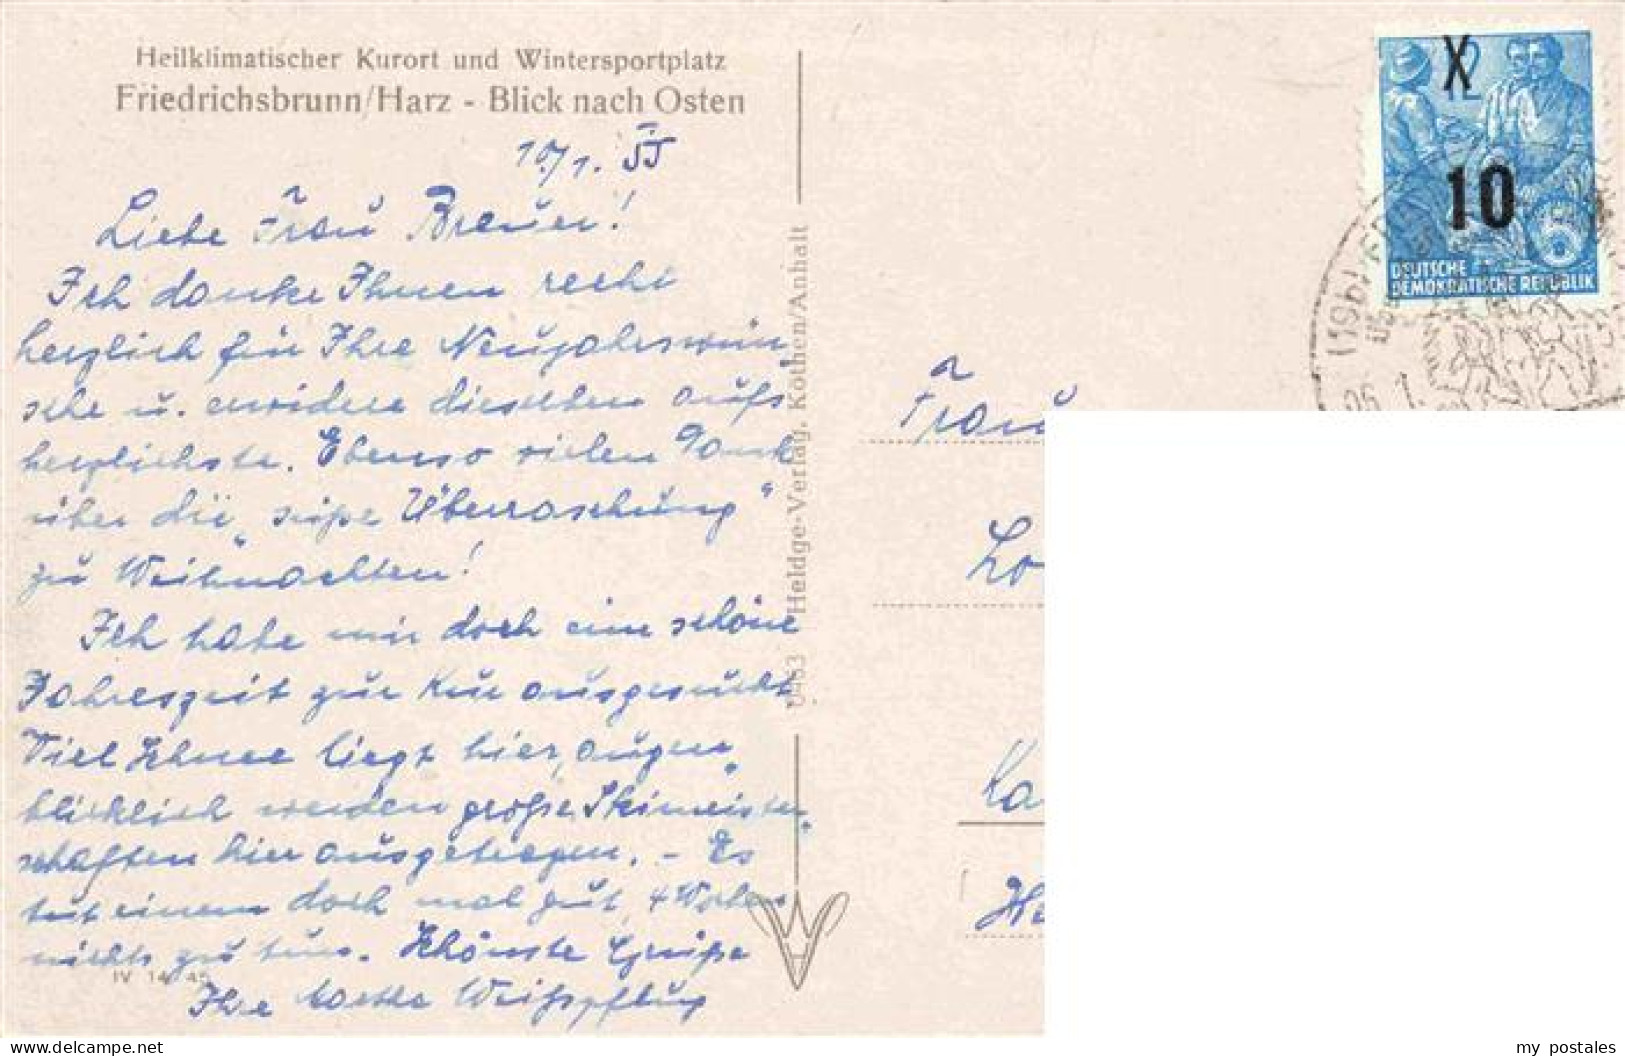 Heilklimatischer Kurort und Wintersportplatz
Friedrichsbrunn/Harz - Blick nach Osten
10/1. 55
Liebe Frau Breuer!
Ich danke Ihnen recht
herzlich für Ihre Neujahrswün-
sche u. erwidere dieselben aufs
herzlichste. Ebenso vielen Dank
über die „süße Überraschung"
zu Weihnachten!
Ich habe mir doch eine schöne
Jahreszeit zur Kur ausgesucht.
Viel Schnee liegt hier, augen-
blicklich werden große Skimeister-
schaften hier ausgetragen. - Es
tut einem doch mal gut, 4 Wochen
nichts zu tun. Schönste Grüße
Ihre Weißpflug
IV 14 45
0453 Heldge-Verlag, Köthen/Anhalt
12
X
10
DEUTSCHE
DEMOKRATISCHE REPUBLIK
(19b)
1.
Frau
Lo
Ka